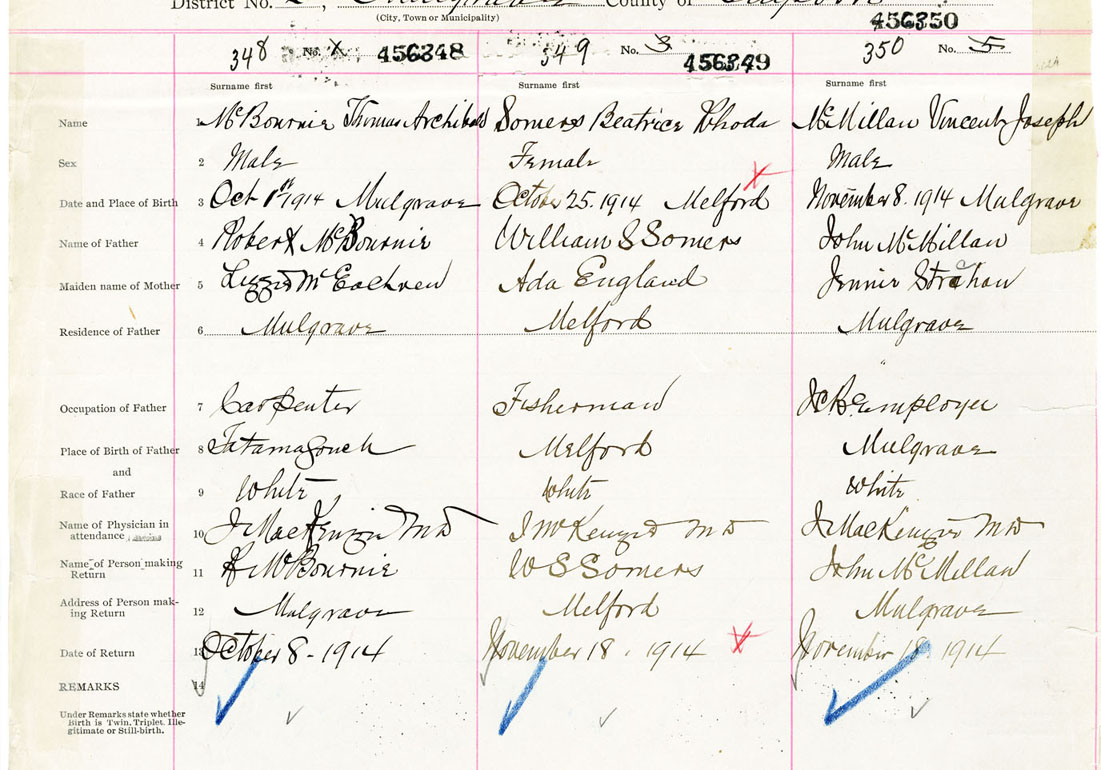 District No. 2, Mulgrave County of
(City, Town or Municipality)
456350
348 No. X 456348 349 No. 3 456349 350 No. 5
Surname first Surname first Surname first
Name 1 McBournie Thomas Archibald Somers Beatrice Rhoda McMillan Vincent Joseph
Sex 2 Male Female Male
Date and Place of Birth 3 Oct 1st 1914 Mulgrave October 25. 1914 Melford November 8. 1914 Mulgrave
Name of Father 4 Robert McBournie William S Somers John McMillan
Maiden name of Mother 5 Lizzie McEachren Ada England Jennie Strahan
Residence of Father 6 Mulgrave Melford Mulgrave
Occupation of Father 7 Carpenter Fisherman Employee
Place of Birth of Father 8 Tatamagouch Melford Mulgrave
and
Race of Father 9 White White White
Name of Physician in
attendance 10 J MacKenzie MD J McKenzie MD J MacKenzie MD
Name of Person making
Return 11 R McBournie W S Somers John McMillan
Address of Person mak-
ing Return 12 Mulgrave Melford Mulgrave
Date of Return 13 October 8 - 1914 November 18. 1914 November 18. 1914
REMARKS 14
Under Remarks state whether
Birth is Twin, Triplet, Ille-
gitimate or Still-birth.